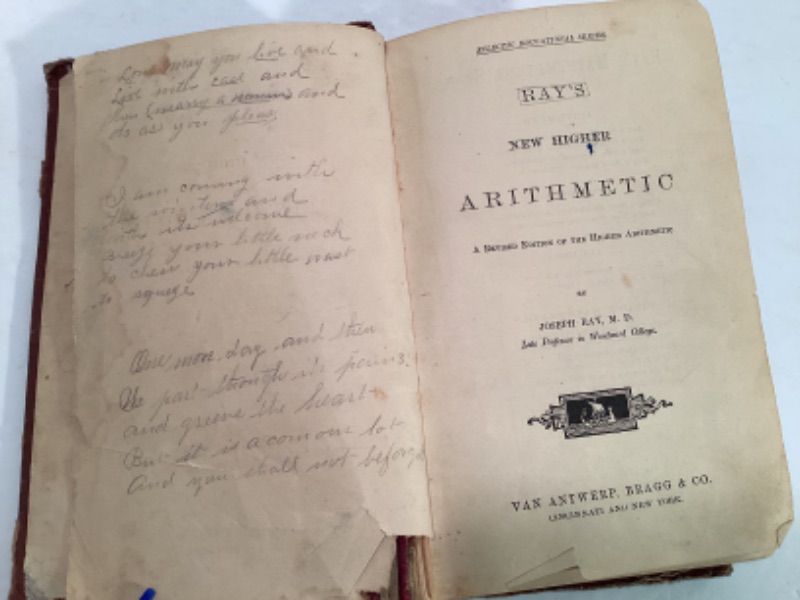 Long may you live and
Live with ease and
then (marry a and
do as you please
I am coming with
the and
welcome
your little neck
to chew your little
to squeeze
One more day and then
We part though it's pains
and grieve the heart
But it is a comon lot
And you shall not be forgot
ECLECTIC EDUCATIONAL SERIES
RAY'S
NEW HIGHER
ARITHMETIC
A REVISED EDITION OF THE HIGHER ARITHMETIC
BY
JOSEPH RAY, M. D.
Late Professor in Woodward College.
VAN ANTWERP, BRAGG & CO.
CINCINNATI AND NEW YORK.